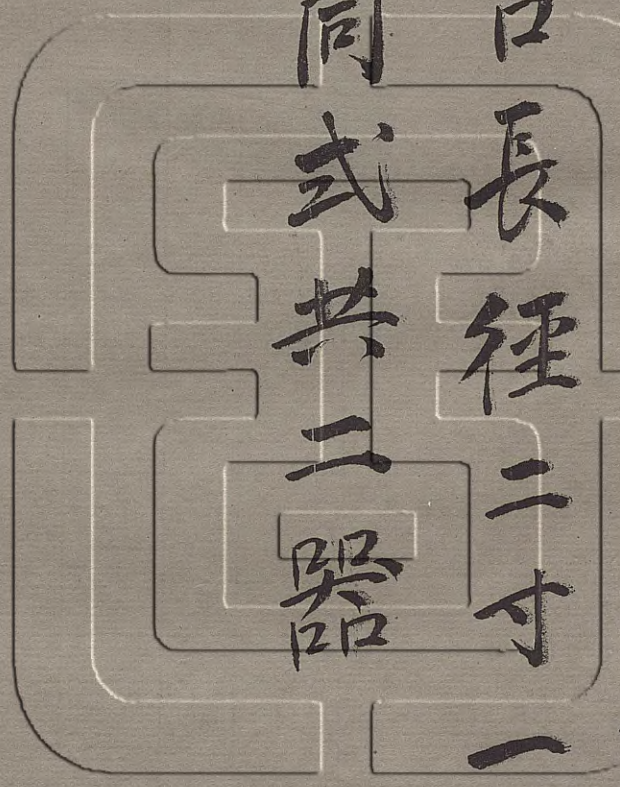 口長徑二寸一
同式共二器